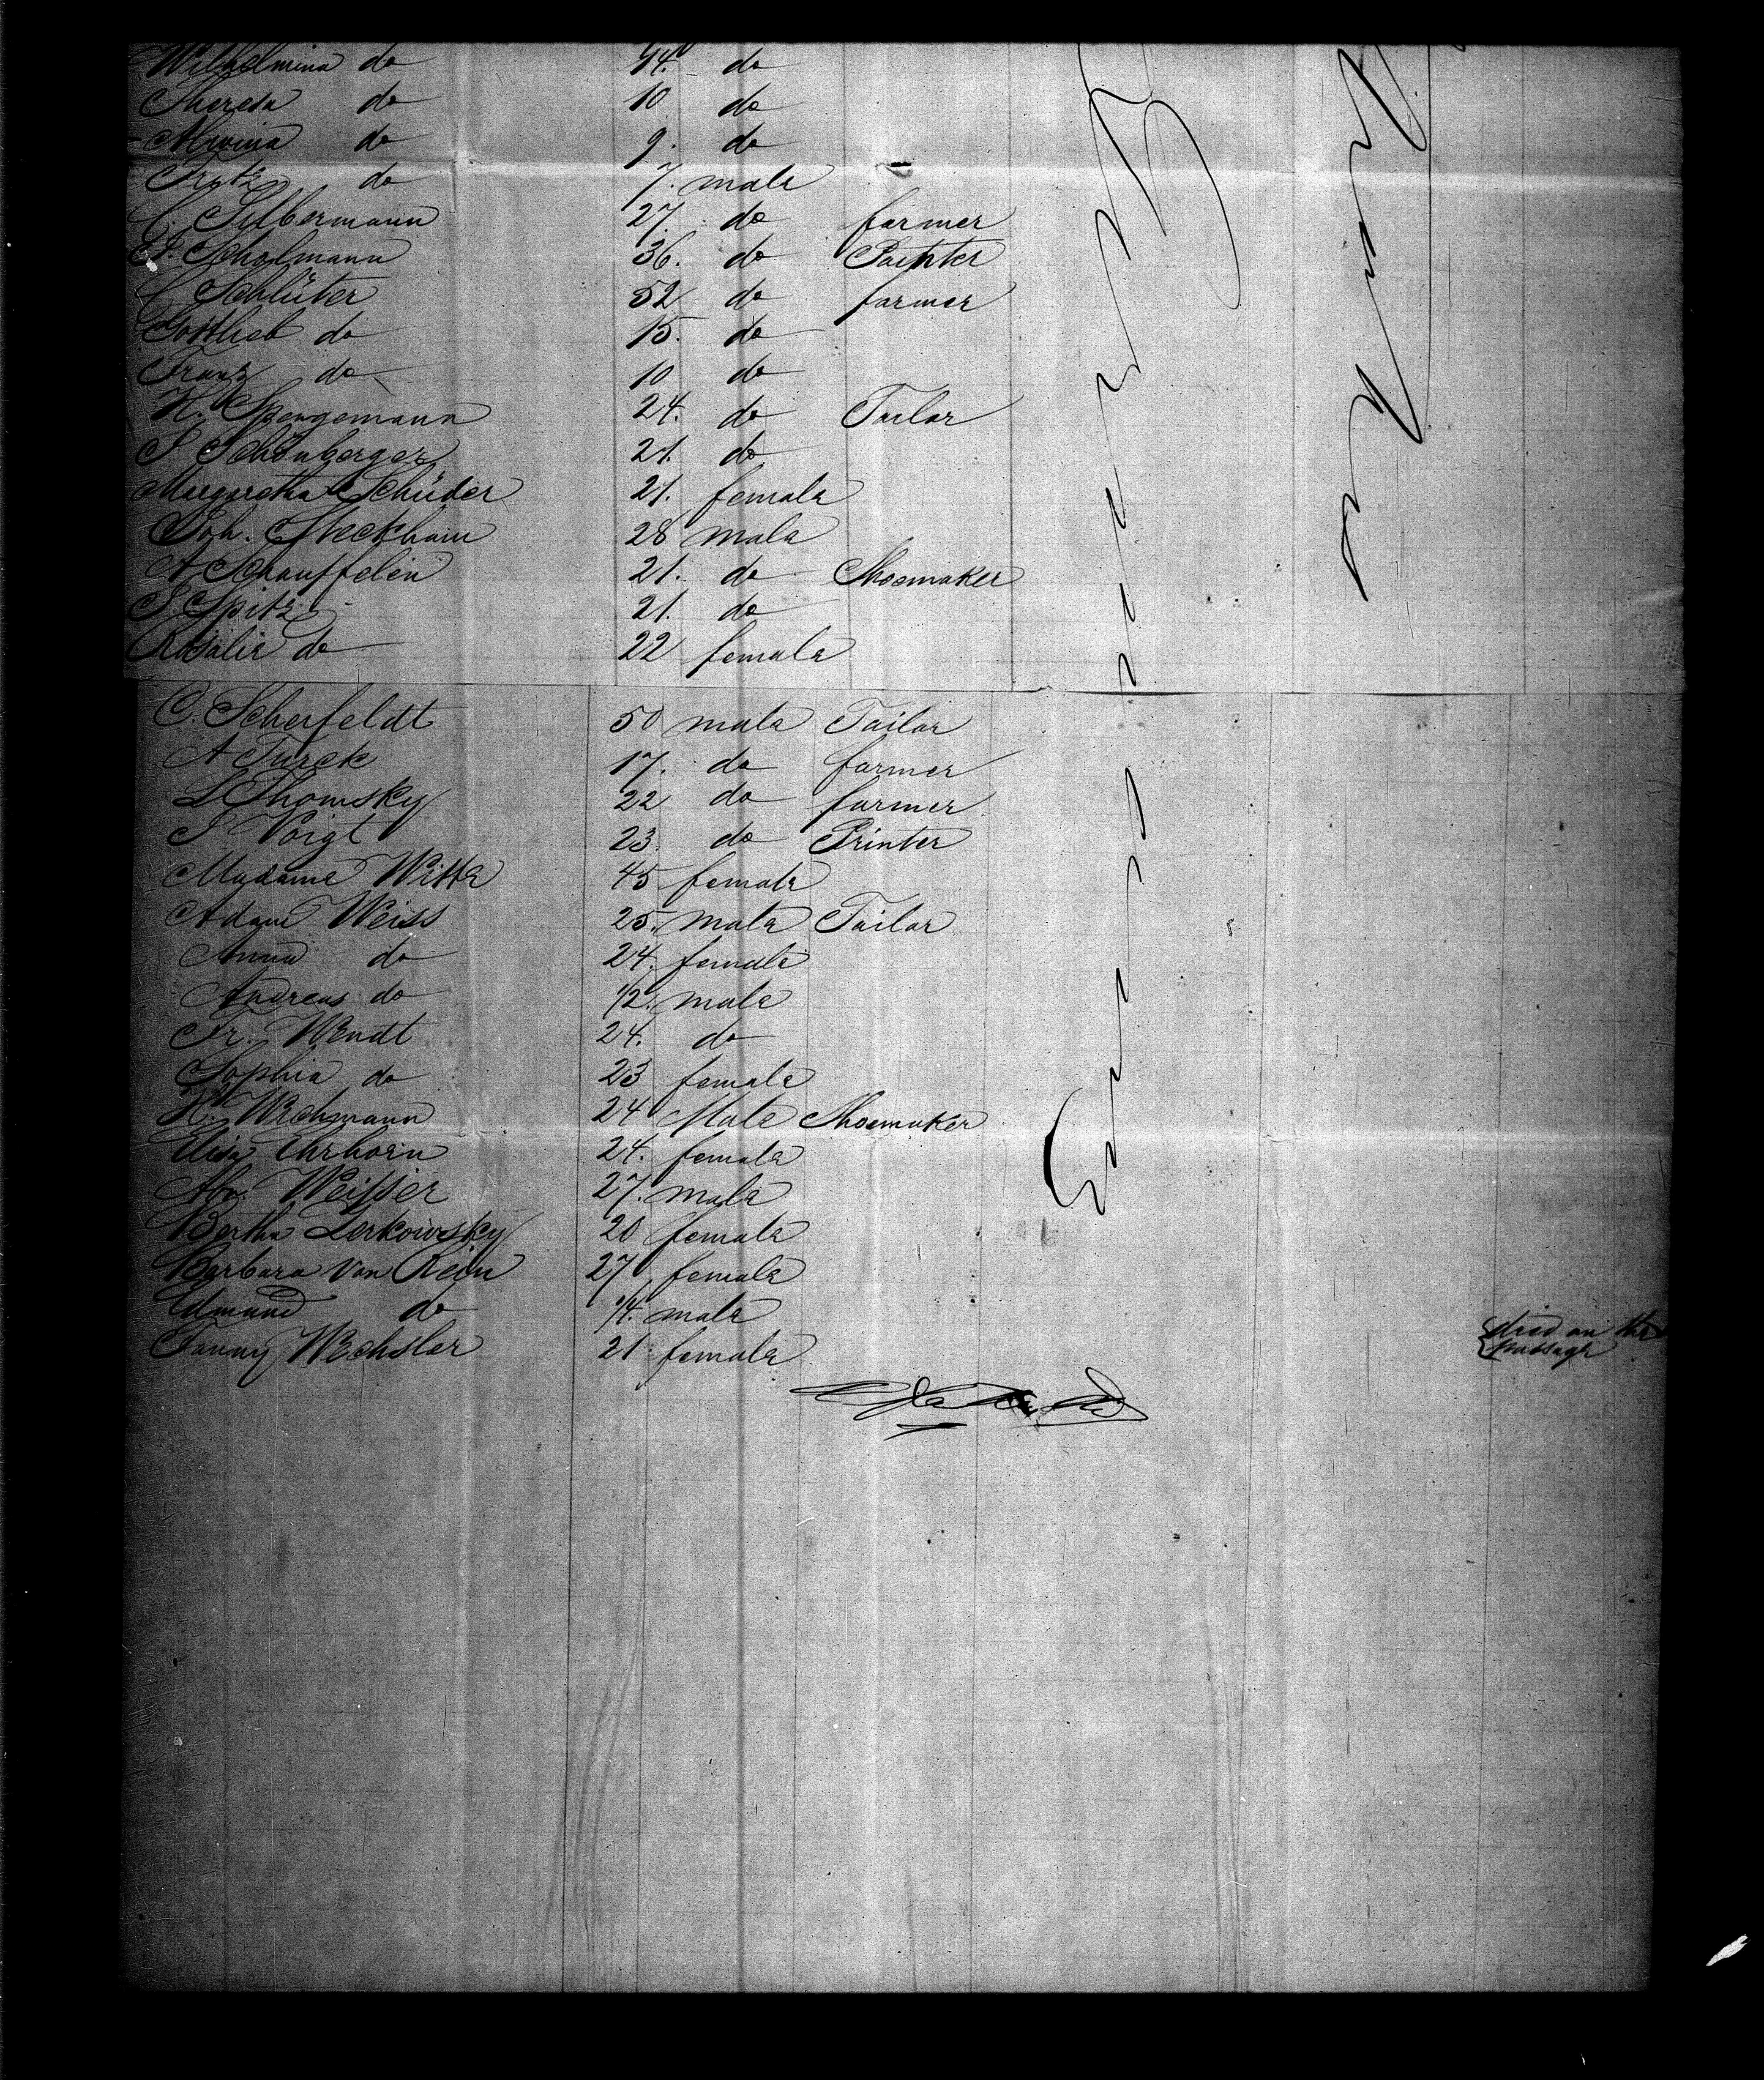 Wilhelmina do 14. do
Theresa do 10 do
Alwina do 9. do
Fritz do 7. male
C. Silbermann 27. do farmer
J. Scholmann 36. do Painter
C Schlüter 52 do farmer
Gottlieb do 15. do
Franz do 10 do
H. Spengemann 24. do Tailor
J Schönberger 21. do
Margaretha Schüder 21. female
Joh. Steckhain 28 male
A Schauffelen 21. do Shoemaker
J Spitz 21. do
Rosalie do 22 female
C. Scherfeldt 50 male Tailor
A Turck 17. do farmer
L Thomsky 22 do farmer
J Voigt 23. do Printer
Madame Witte 45 female
Adam Weiss 25. male Tailor
Anna do 24. female
Andreas do 1/2. male
Fr. Wendt 24. do
Sophia do 23 female
H. Wichmann 24 Male Shoemaker
Elisa Ehrhorn 24. female
Abr. Weisser 27. male
Bertha Lerkowsky 20 female
Barbara Von Rein 27 female
Edmund do 1/4. male died on the
passage
Fanny Wechsler 21 female
Germany